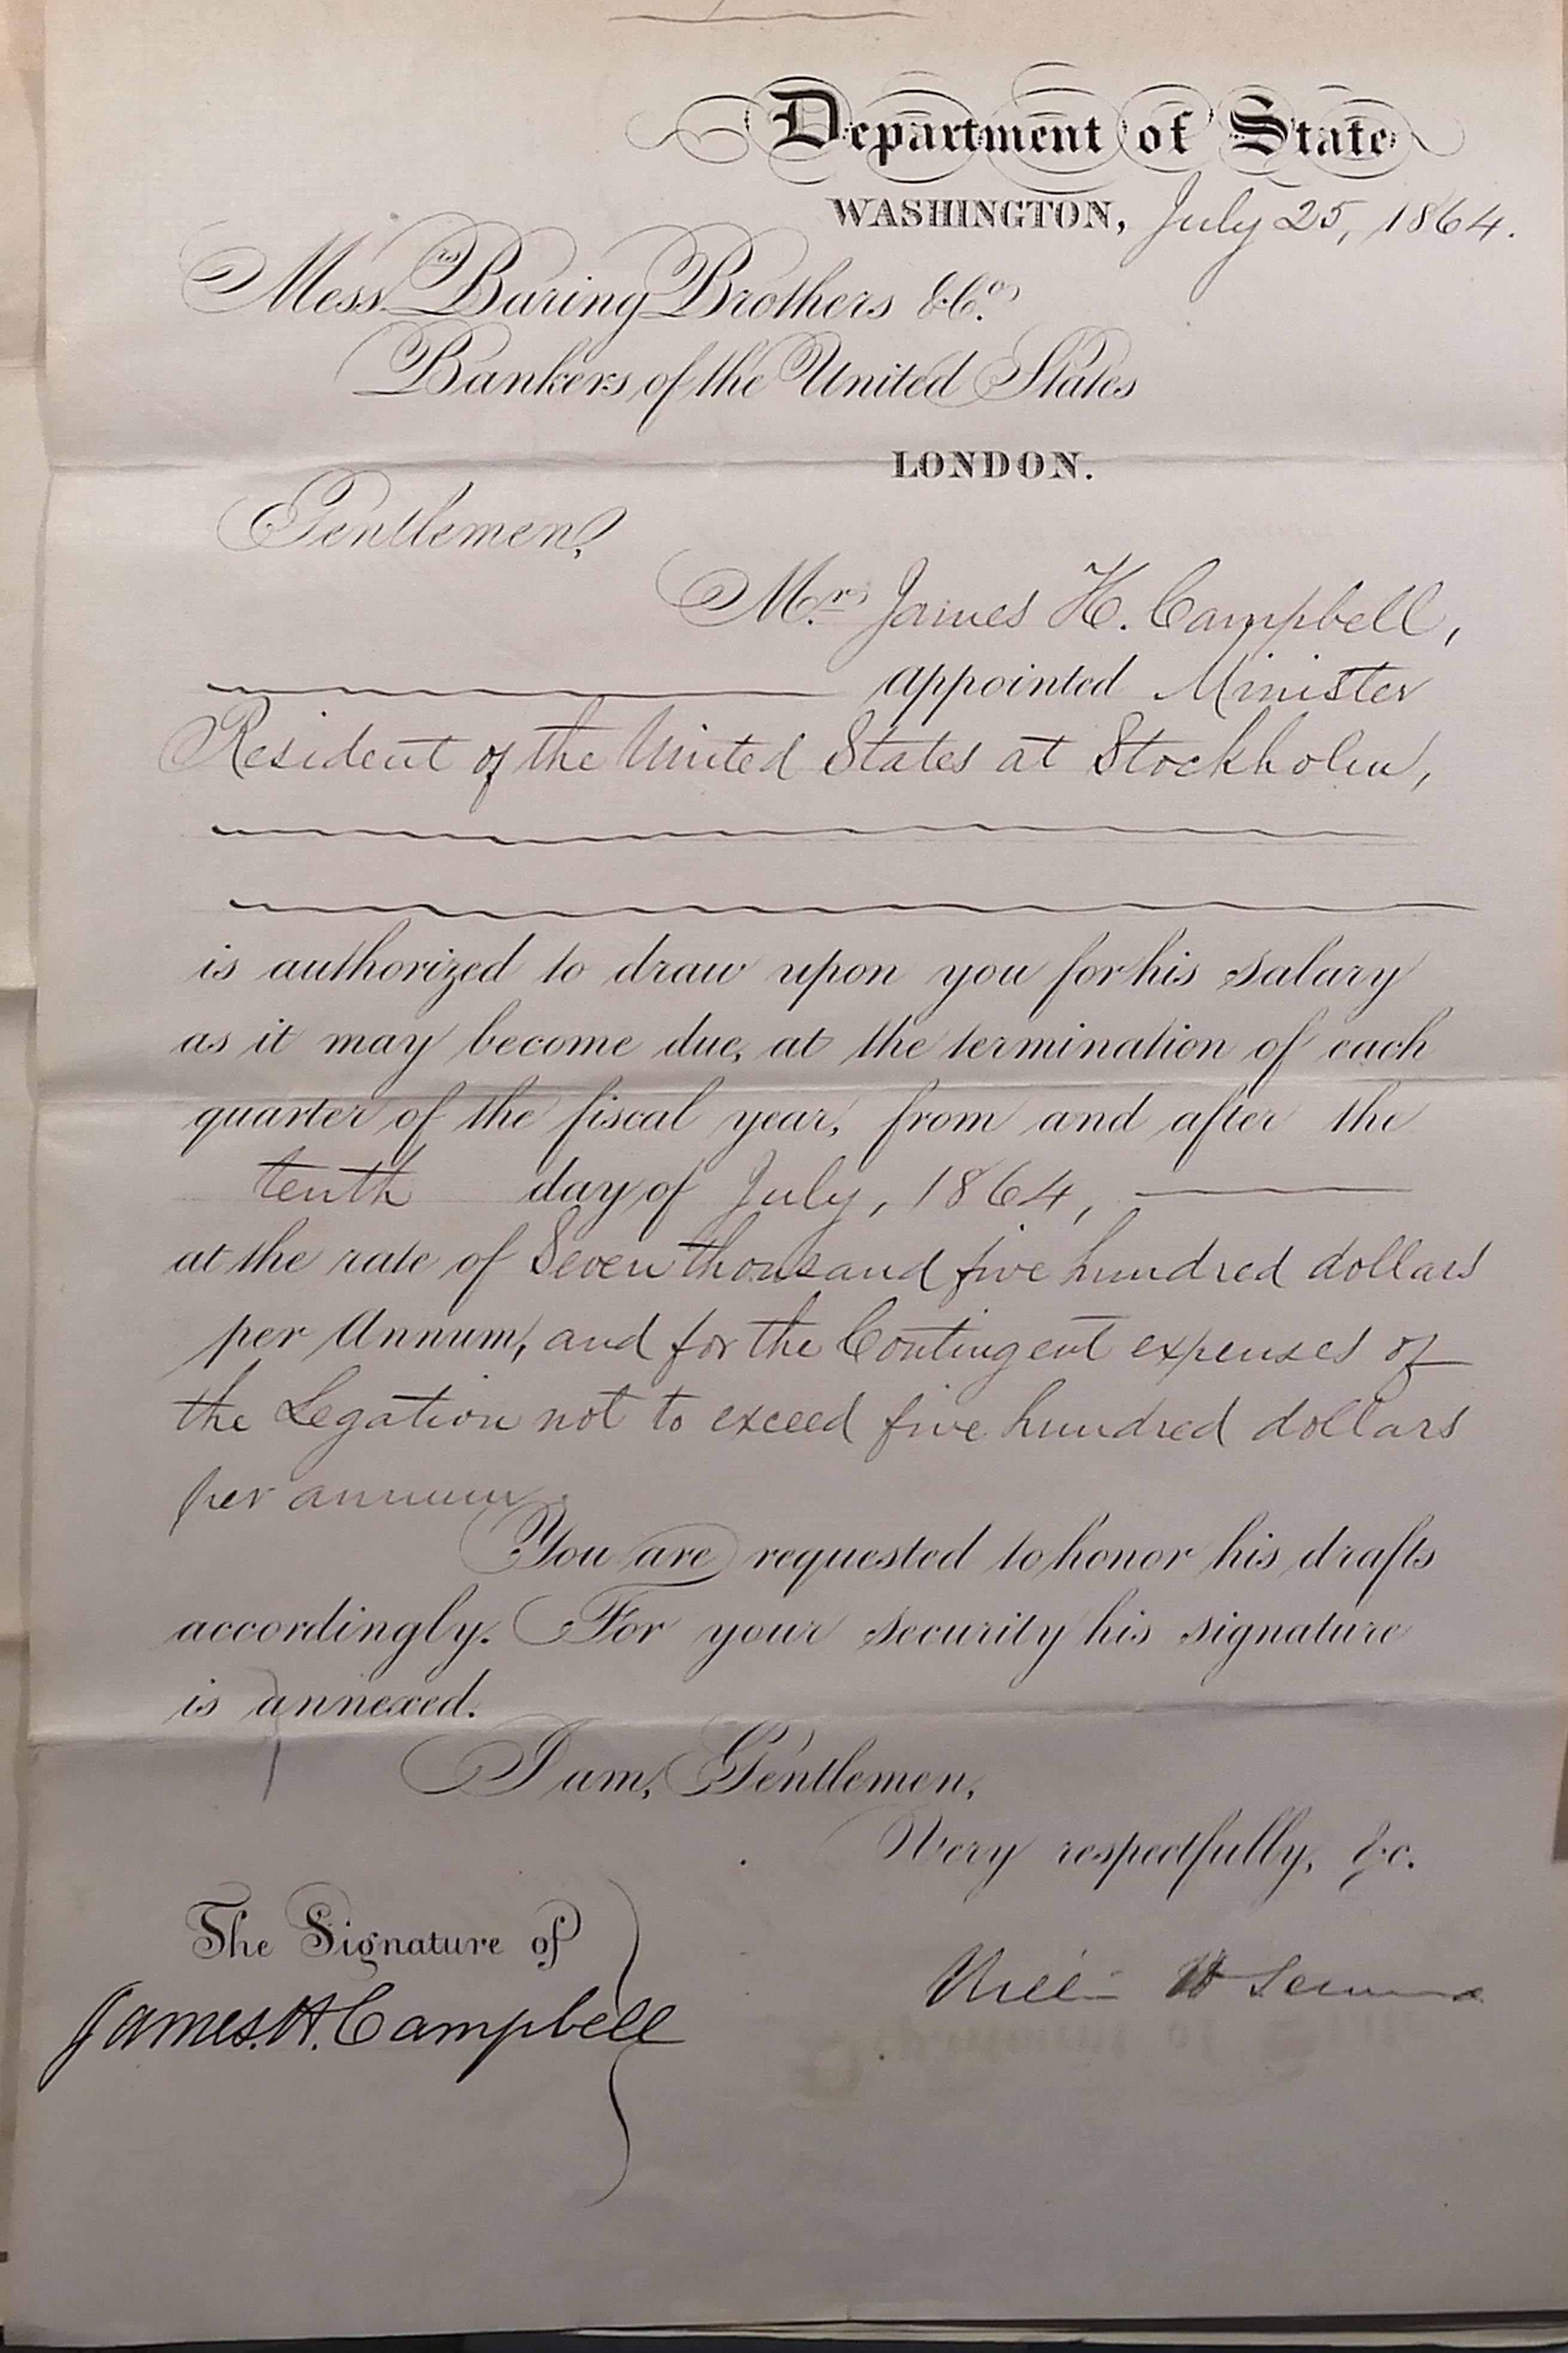 Department of State
WASHINGTON, July 25, 1864.
Messrs Baring Brothers & Co.
Bankers of the United States
LONDON.
Gentlemen,
Mr. James H. Campbell,
appointed Minister
Resident of the United States at Stockholm,
is authorized to draw upon you for his salary
as it may become due, at the termination of each
quarter of the fiscal year, from and after the
tenth day of July, 1864,
at the rate of Seven thousand five hundred dollars
per Annum, and for the Contingent expenses of
the Legation not to exceed five hundred dollars
per annum.
You are requested to honor his drafts
accordingly. For your security his signature
is annexed.
I am, Gentlemen,
Very respectfully, &c.
The Signature of
William H Seward
James H. Campbell